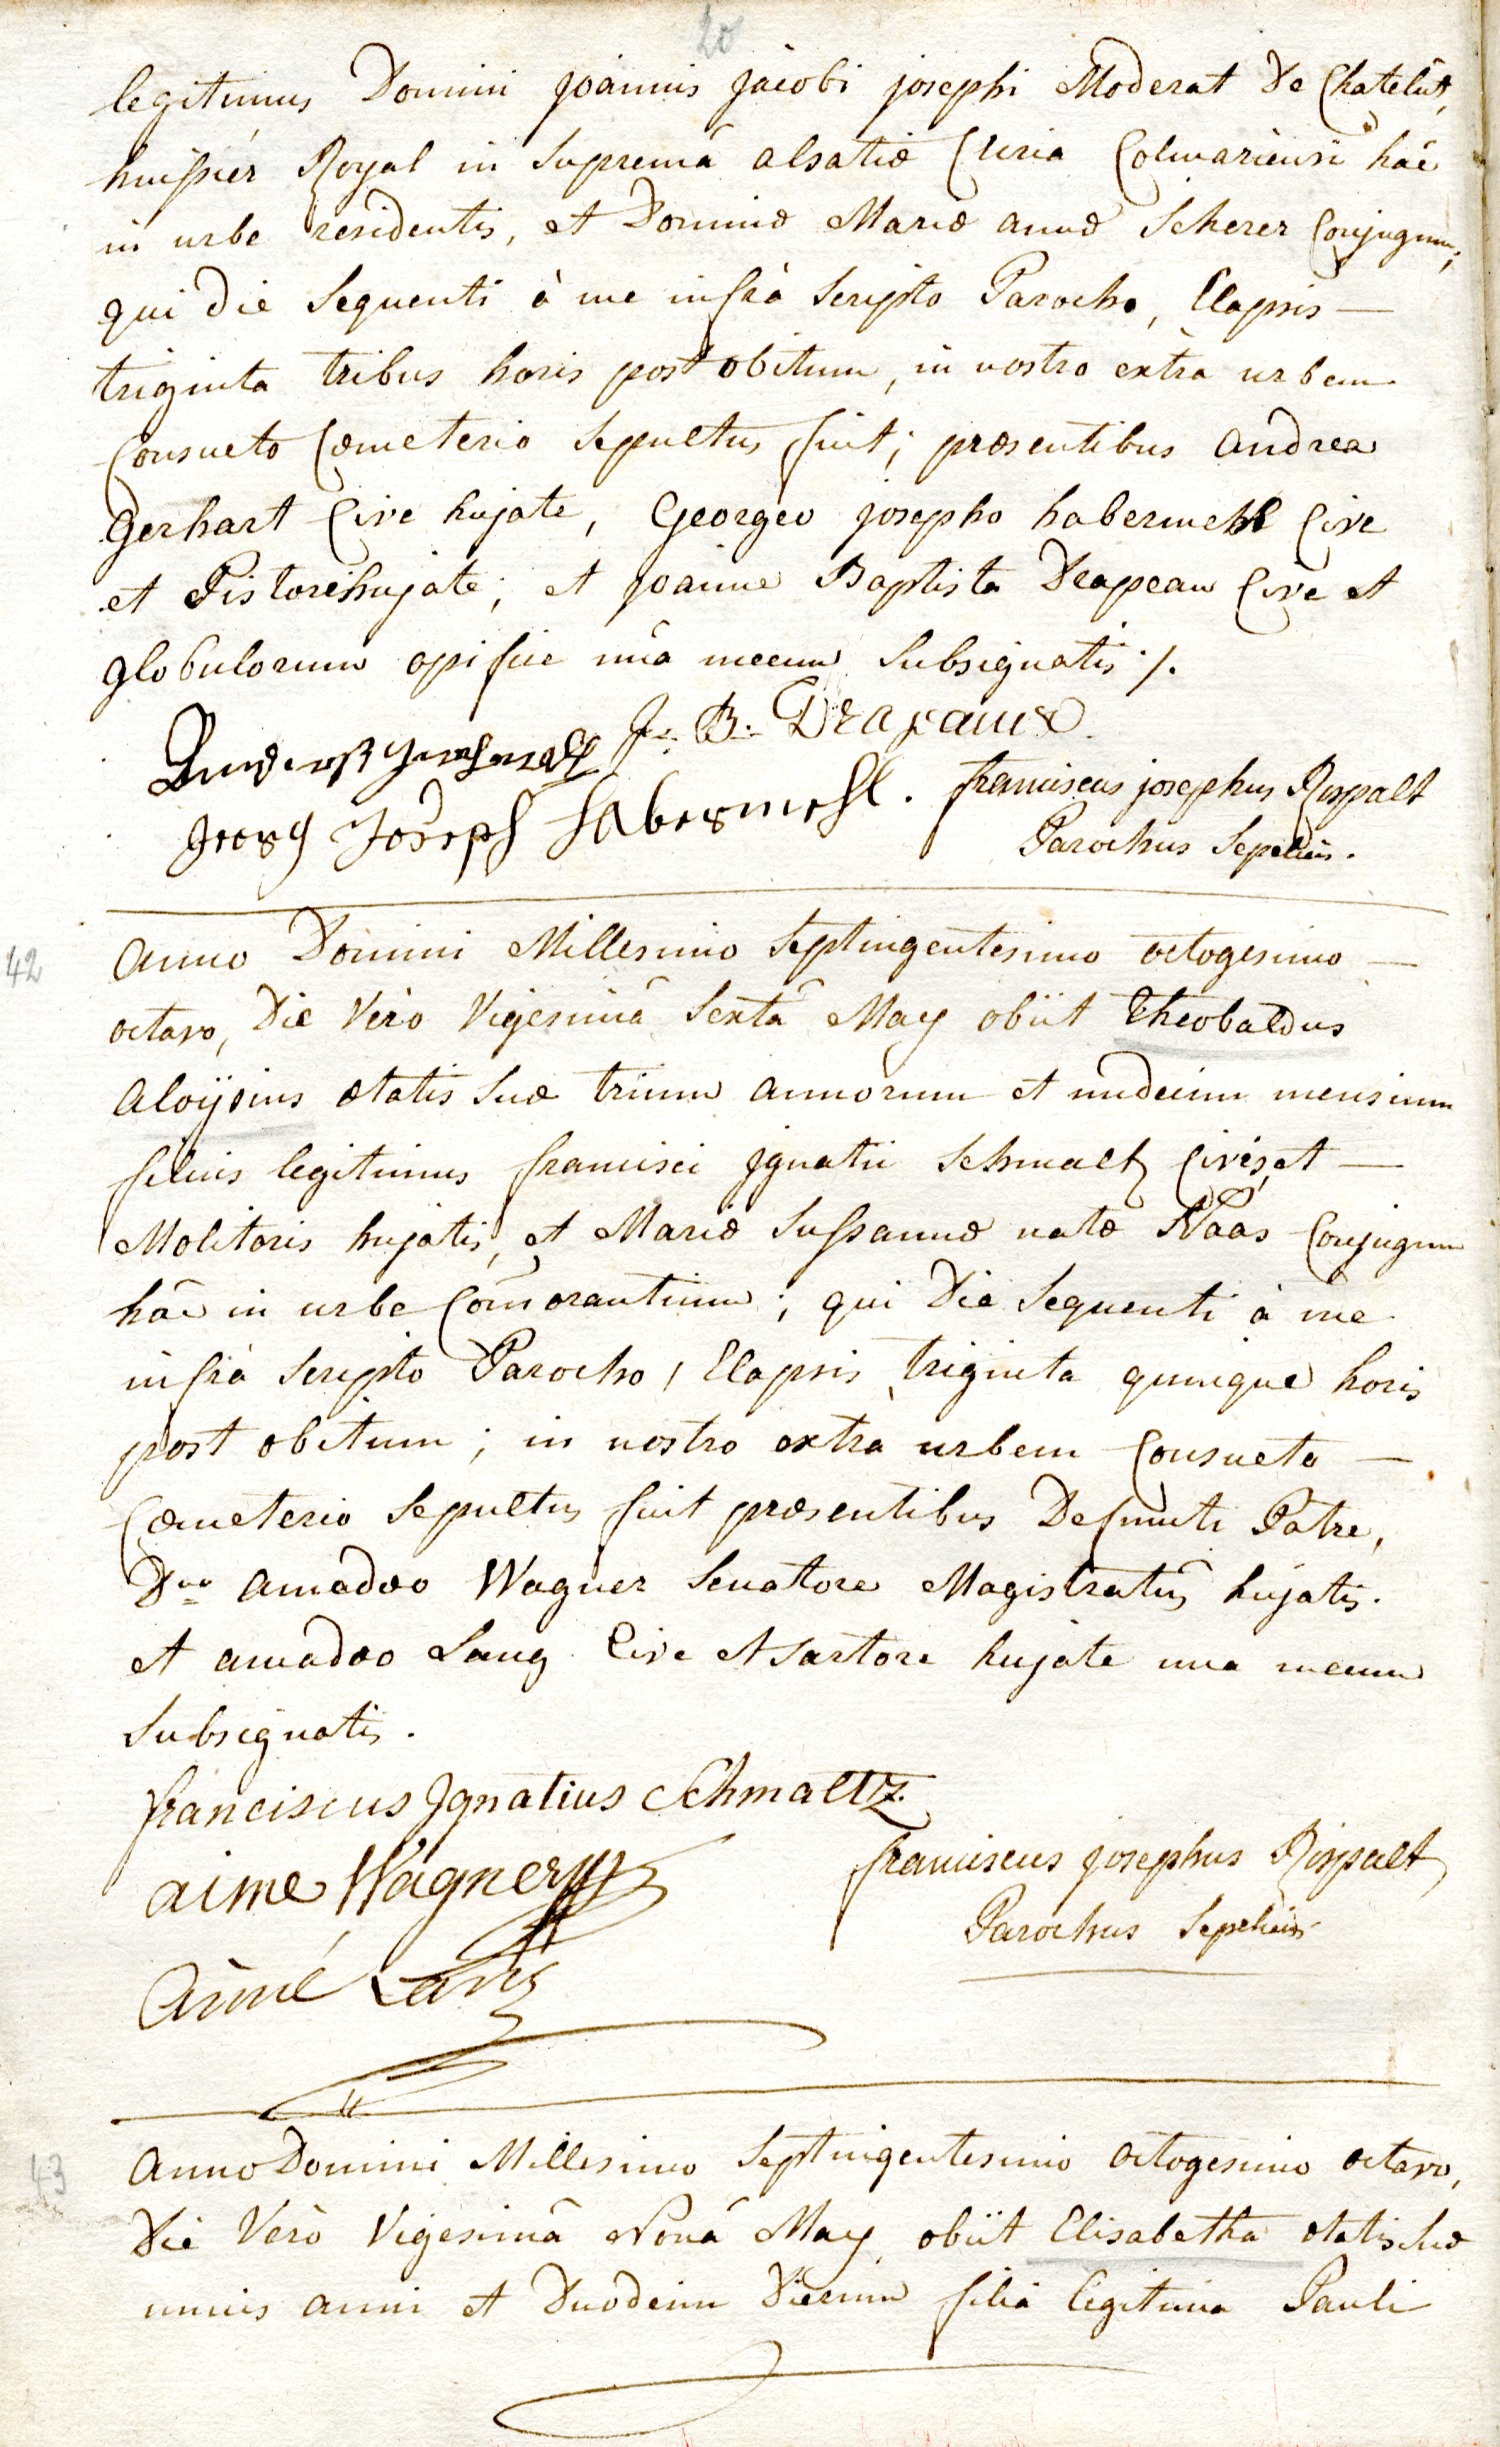 20
legitimus Domini Joannis Jacobi josephi Moderat De Chatelût,
huissier Royal in Supremâ alsatiæ Curia Colmariensi hâc
in urbe residentis, et Dominæ Mariæ annæ Scherer Conjugum;
qui die Sequenti à me infrà Scripto Parocho, Elapsis —
triginta tribus horis post obitum, in nostro extra urbem
Consueto Cœmeterio Sepultus fuit; præsentibus Andrea
Gerhart Cive hujate, Georgeo josepho habermehl Cive
et Pistore hujate; et Joanne Baptista Drapeau Cive et
globulorum opifice unâ mecum Subsignatis ./.
J. B. Drapeaux
Georg Joseph Habermehl. franciscus josephus Rispalt
Parochus Sepeliens.
42
Anno Domini Millesimo Septingentesimo octogesimo —
octavo, Die Verò Vigesimâ Sextâ May obiit Theobaldus
Aloÿsius ætatis Suæ trium annorum et undecim mensium
filius legitimus francisci Jgnatii Schmaltz Civis, et —
Molitoris hujatis, et Mariæ Sussannæ natæ Naas Conjugum
hâc in urbe Com̄orantium; qui Die Sequenti à me
infrà Scripto Parocho, Elapsis triginta quinque horis
post obitum; in nostro extra urbem Consueto —
Cœmeterio Sepultus fuit præsentibus Defuncti Patre,
Dno Amadæo Wagner Senatore Magistratûs hujatis.
et amadæo Lang Cive et Sartore hujate una mecum
Subsignatis.
franciscus Jgnatius Schmaltz
aime Wagner franciscus josephus Rispalt
Parochus Sepeliens
Aimé Lang
43
Anno Domini Millesimo Septingentesimo octogesimo octavo,
Die Verò Vigesimâ Nonâ May obiit Elisabetha ætatis Suæ
unius anni et Duodecim Dierum filia legitima Pauli